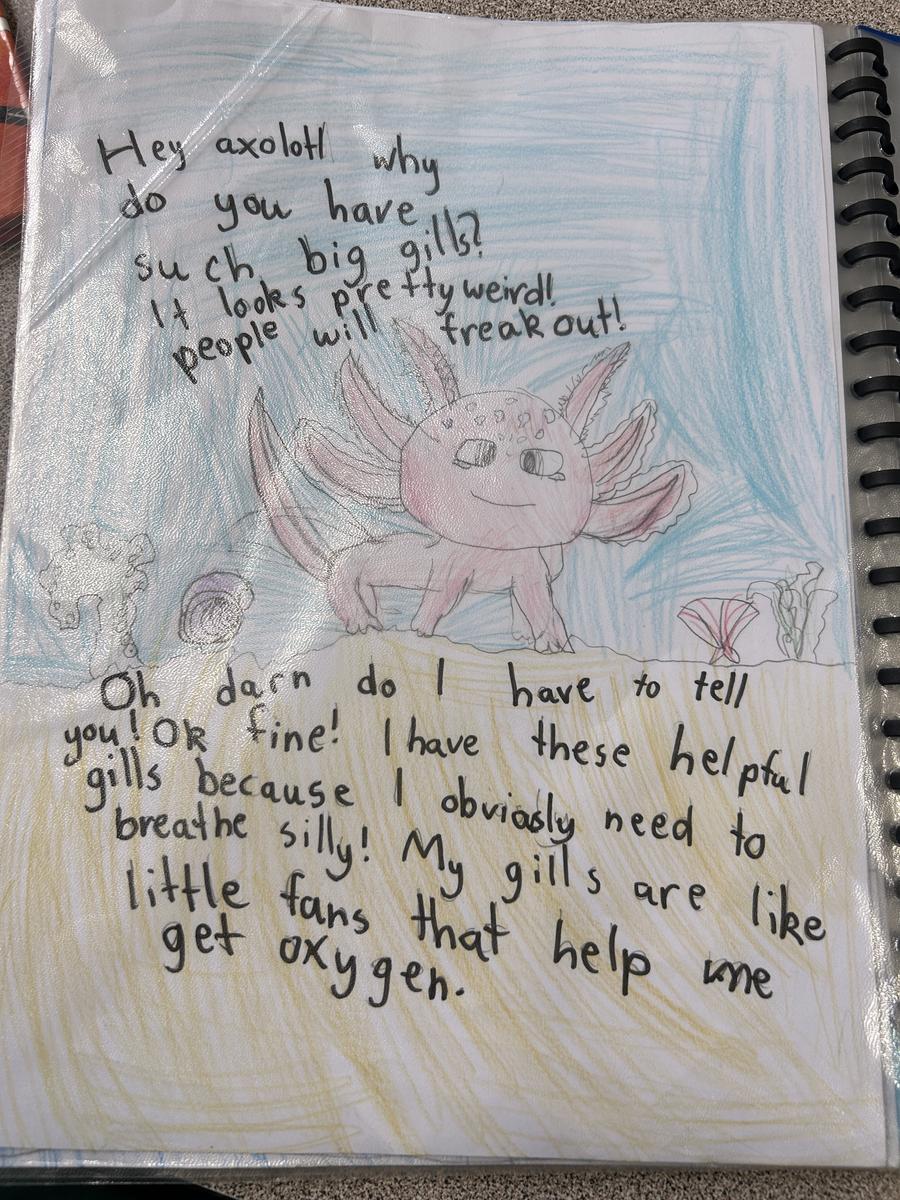 Hey axolotl why
do you have
such big gills?
It looks pretty weird!
people will freak out!
Oh darn do I have to tell
you! Ok fine! I have these helpful
gills because I obviosly need to
breathe silly! My gills are like
little fans that help me
get oxygen.